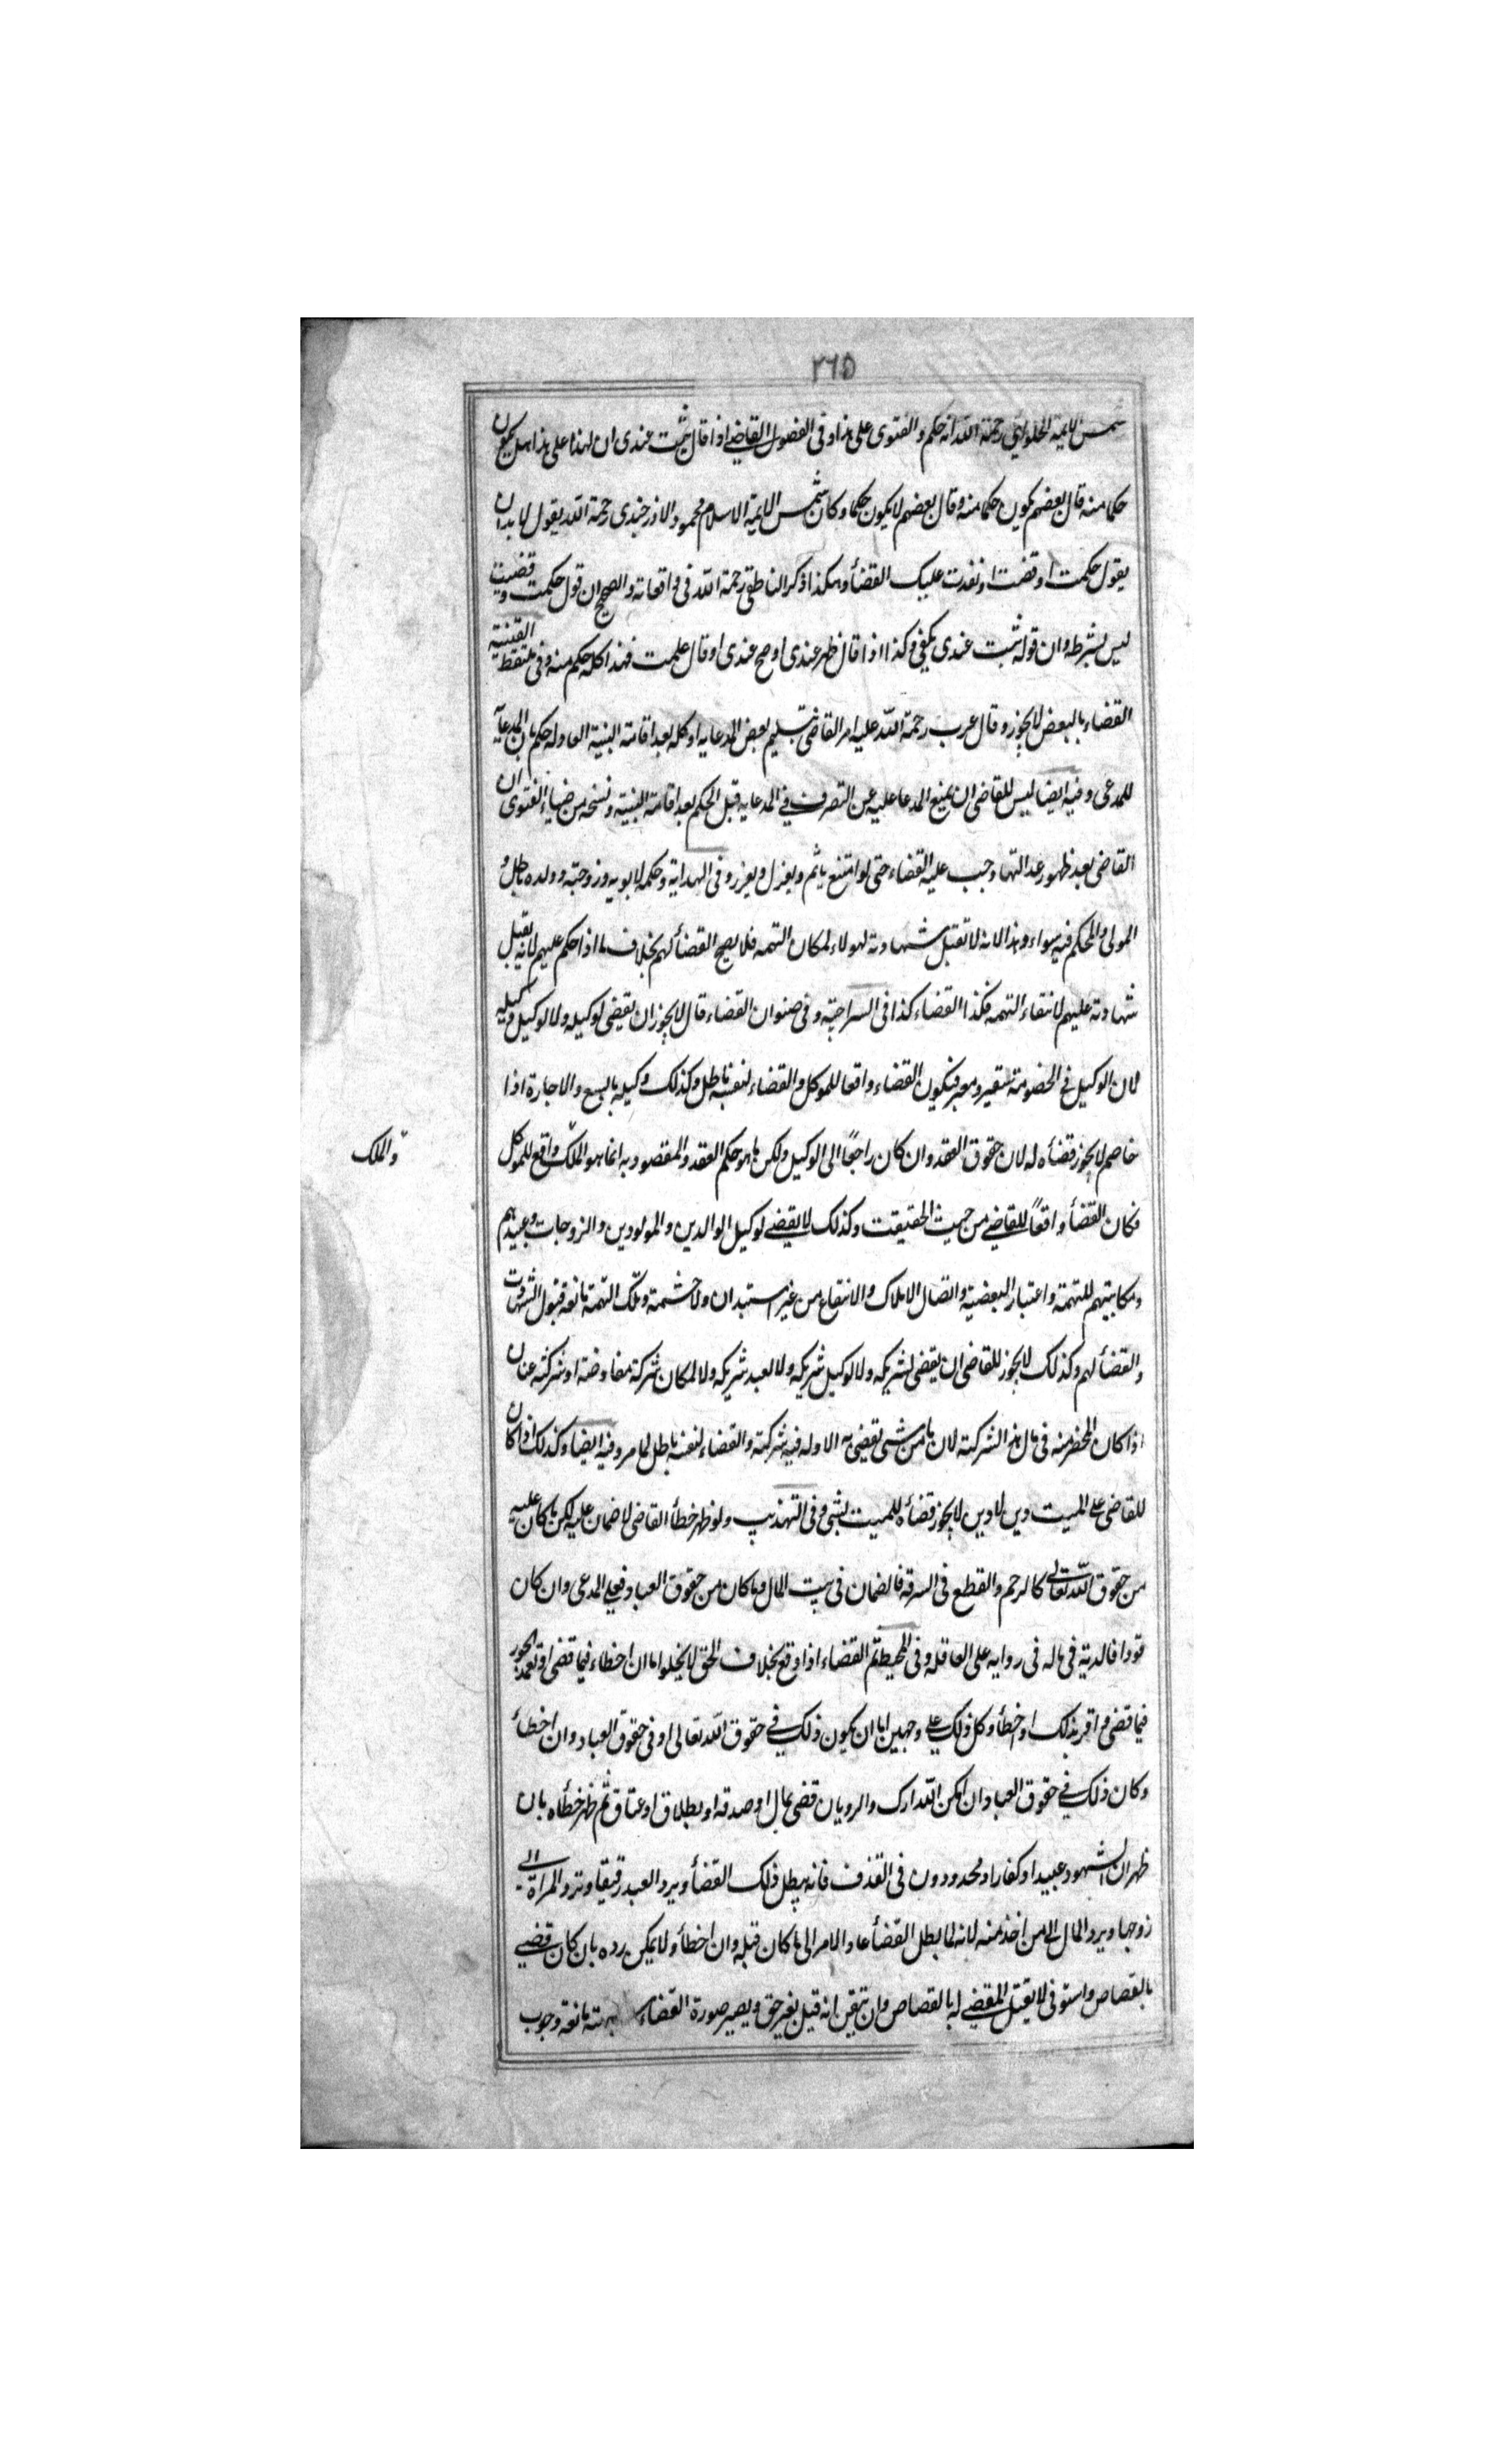 ٢٦٥
شمس الايمة الحلوائي رحمة الله انه حكم والفتوى على هذا وفى الفصول القاضے اذا قال ثبت عندى ان لهذا على هذا هل يكون
حكما منه قال بعضهم يكون حكما منه وقال بعضهم لا يكون حكما وكان شمس الايمة الاسلام محمود الاوزجندى رحمة الله يقول لا بد ان
يقول حكمت او قضيت او نفذت عليك القضأ وهكذا ذكر الناطقى رحمة الله فى واقعاته والصحيح ان قول حكمت وقضيت
ليس بشرط وان قوله ثبت عندى يكفى وكذا اذا قال ظهر عندى او صح عندى او قال علمت فهذا كله حكم منه وفى ملتقط القنية
القضاء بالبعض لا يجوز وقال عرب رحمة الله عليه امر القاضى بتسليم بعض المدعا به او كله بعد اقامة البنية العاوله حكم بان المدعا به
للمدعى وفيه ايضا ليس للقاضى ان يمنع المدعا عليه عن التصرف فے المدعا به قبل الحكم بعد اقامة البنية ونسخه من ضياء الفتوى ان
القاضى بعد ظهور عدالتها وجب عليه القضاء حتى لو امتنع ياثم ويعزل ويعزر وفى الهداية وحكمه لابويه وزوجته وولده باطل و
المولى والمحكم فيه سواء وهذا لانه لا تقبل شهادته لهولاء لمكان التهمه فلا يصح القضأ لهم بخلاف ما اذا حكم عليهم لانه يقبل
شهادته عليهم لانتفاء التهمه فكذا القضاء كذا فى السراجيه وفى صنوان القضاء قال لا يجوز ان يقضى لوكيله ولا لوكيل وكيله
لان الوكيل فى الخصومة سفير ومعبر فيكون القضاء واقعا للموكل والقضاء لنفسه باطل وكذلك وكيله بالبيع والاجارة اذا
خاصم لا يجوز قضأه له لان حقوق العقد وان كان راجعًا الى الوكيل ولكن ما هو حكم العقد والمقصود به انما هو الملك واقع للموكل
والملك
فكان القضأ واقعاً للقاضے من حيث الحقيقت وكذلك لا يقضے لوكيل الوالدين والمولودين والزوجات وعبيدهم
ومكاتبيهم للتهمة واعتبار البعضية واتصال الاملاك والانتفاع من غير استبدان ولا حشمة وتلك التهمة مانعه قبول الشهادت
والقضأ لهم وكذلك لا يجوز للقاضى ان يقضى لشريكه ولا لوكيل شريكه ولا لعبد شريكه ولا لمكان شركة مفاوضة او شركته عنان
اذا كان المحضر منه فى مال هذا الشركة لان ما من شى يقضى به الا وله فيه شركته والقضاء لنفسه باطل لما مر وفيه ايضا وكذلك اذا كان
للقاضى على الميت دين لا دين لا يجوز قضأه للميت بشى وفى التهذيب ولو ظهر خطأ القاضى لا ضمان عليه لكن ما كان عليه
من حقوق الله تعالى كالرجم والقطع فى السرقه فالضمان فى بيت المال وما كان من حقوق العباد فعلے المدعى وان كان
قودا فالدية فى ماله فى روايه على العاقله وفى المحيط ثم القضاء اذا وقع بخلاف الحق لا يخلوا اما ان اخطاء فيما قضى او تعمد الجور
فيما قضى واقر بذلك او خطأ وكل ذلك علے وجهين اما ان يكون ذلك فے حقوق الله تعالى او فى حقوق العباد وان اخطأ
وكان ذلك فے حقوق العباد ان امكن التدارك والرد بان قضى بمال او صدقه او بطلاق او عتاق ثم ظهر خطأه بان
ظهر ان الشهود عبيدا او كفارا او محدودون فى القذف فانه يبطل ذلك القضأ ويرد العبد رقيقا وترد المرأة الے
زوجها ويرد المال الے من اخذ منه لانه لما بطل القضأ عاد الامر الى ما كان قبله وان اخطأ ولا يمكن رده بان كان قضے
بالقصاص واستوفى لا يقتل المقضے له بالقصاص وان تيقن انه قتل بغير حق ويصير صورة القضاء مانعة وجوب